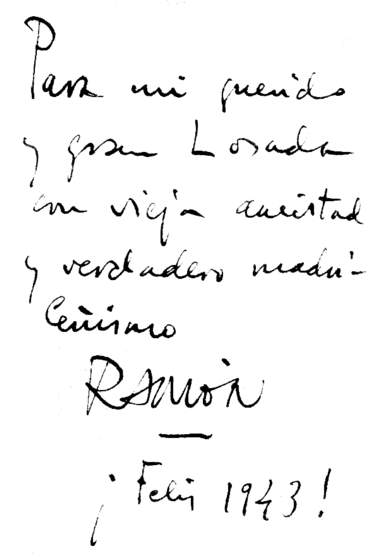 Para mi querido
y gran Losada
con vieja amistad
y verdadero madri-
leñismo
RAMÓN
¡Feliz 1943!